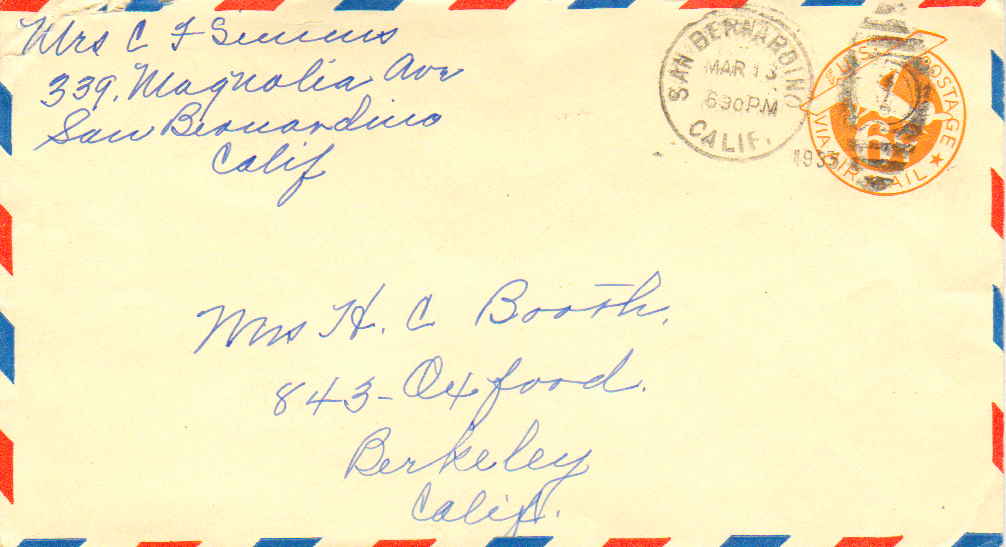 Mrs C F Simms
339, Magnolia Ave
San Bernardino
Calif
SAN BERNARDINO
MAR 13
630PM
CALIF.
1935
U.S. POSTAGE
6
VIA AIR MAIL
Mrs H. C Booth.
843-Oxford.
Berkeley
Calif.